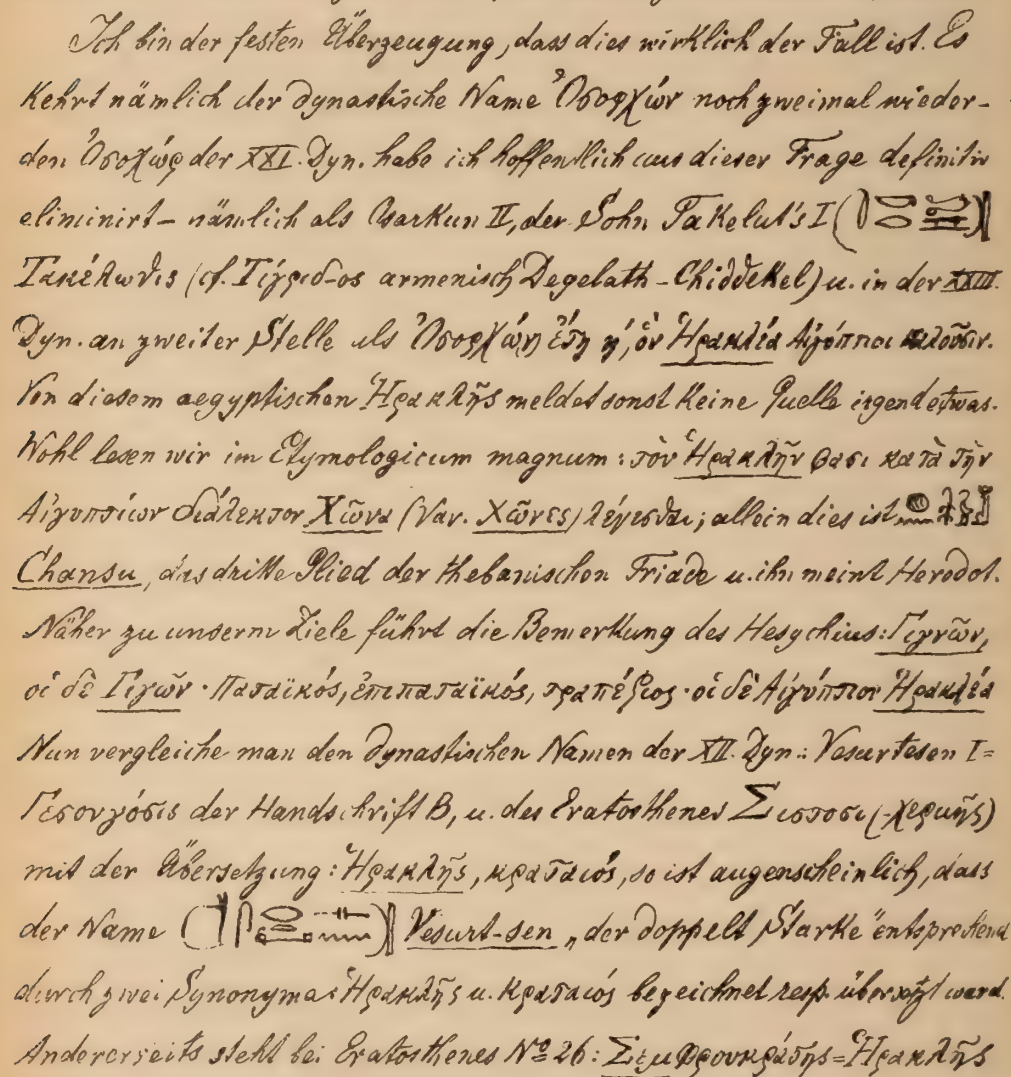 Ich bin der festen Überzeugung, dass dies wirklich der Fall ist. Es
kehrt nämlich der dynastische Name Ὀσορχών noch zweimal wieder –
den Ὀσοχώρ der XXI. Dyn. habe ich hoffentlich aus dieser Frage definitiv
eliminirt – nämlich als Osarkun II, der Sohn Takelut's I
Τακέλωθις (cf. Τίγριδ-ος armenisch Degelath – Chiddekel) u. in der XXIII.
Dyn. an zweiter Stelle als Ὀσορχών ἔτη η', ὃν Ἡρακλέα Αἰγύπτιοι καλοῦσιν.
Von diesem aegyptischen Ἡρακλῆς meldet sonst keine Quelle irgend etwas.
Wohl lesen wir im Etymologicum magnum: τὸν Ἡρακλῆν φασι κατὰ τὴν
Αἰγυπτίων διάλεκτον Χῶνα (Var. Χῶνες) λέγεσθαι; allein dies ist
Chansu, das dritte Glied der thebanischen Triade u. ihn meint Herodot.
Näher zu unserm Ziele führt die Bemerkung des Hesychius: Γιγνῶν,
οἱ δὲ Γιγῶν · Παταϊκός, ἐπιπαταϊκός, τραπέζιος · οἱ δὲ Αἰγύπτιον Ἡρακλέα
Nun vergleiche man den dynastischen Namen der XII. Dyn.: Vesurtesen I =
Γεσονγόσις der Handschrift B, u. des Eratosthenes Σιστοσι (-χερμῆς)
mit der Übersetzung: Ἡρακλῆς, κραταιός, so ist augenscheinlich, dass
der Name Vesurt-sen „der doppelt Starke" entsprechend
durch zwei Synonyma: Ἡρακλῆς u. κραταιός bezeichnet resp. übersetzt ward.
Andererseits steht bei Eratosthenes Nº 26: Σεμφρουκράτης = Ἡρακλῆς